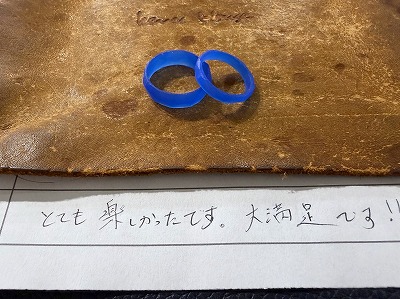 とても楽しかったです。大満足です!!